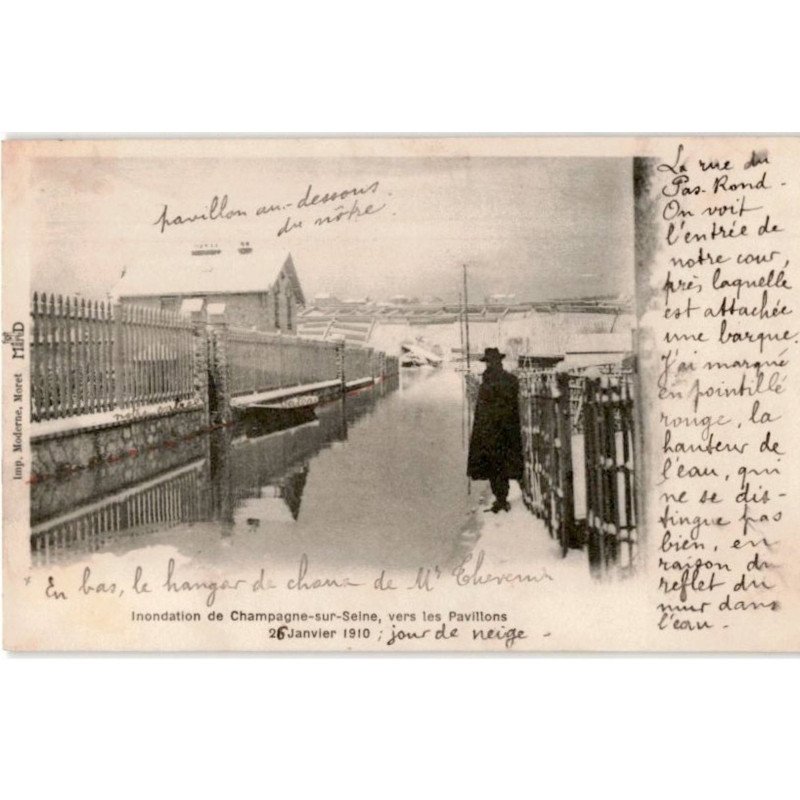 pavillon au-dessous
du nôtre.
La rue du
Pas-Rond.
On voit
l'entrée de
notre cour,
près laquelle
est attachée
une barque.
J'ai marqué
en pointillé
rouge, la
hauteur de
l'eau, qui
ne se dis-
tingue pas
bien, en
raison du
reflet du
mur dans
l'eau.
Imp. Moderne, Moret
En bas, le hangar de chaux de Mr Thevenin
Inondation de Champagne-sur-Seine, vers les Pavillons
26 Janvier 1910 ; jour de neige.